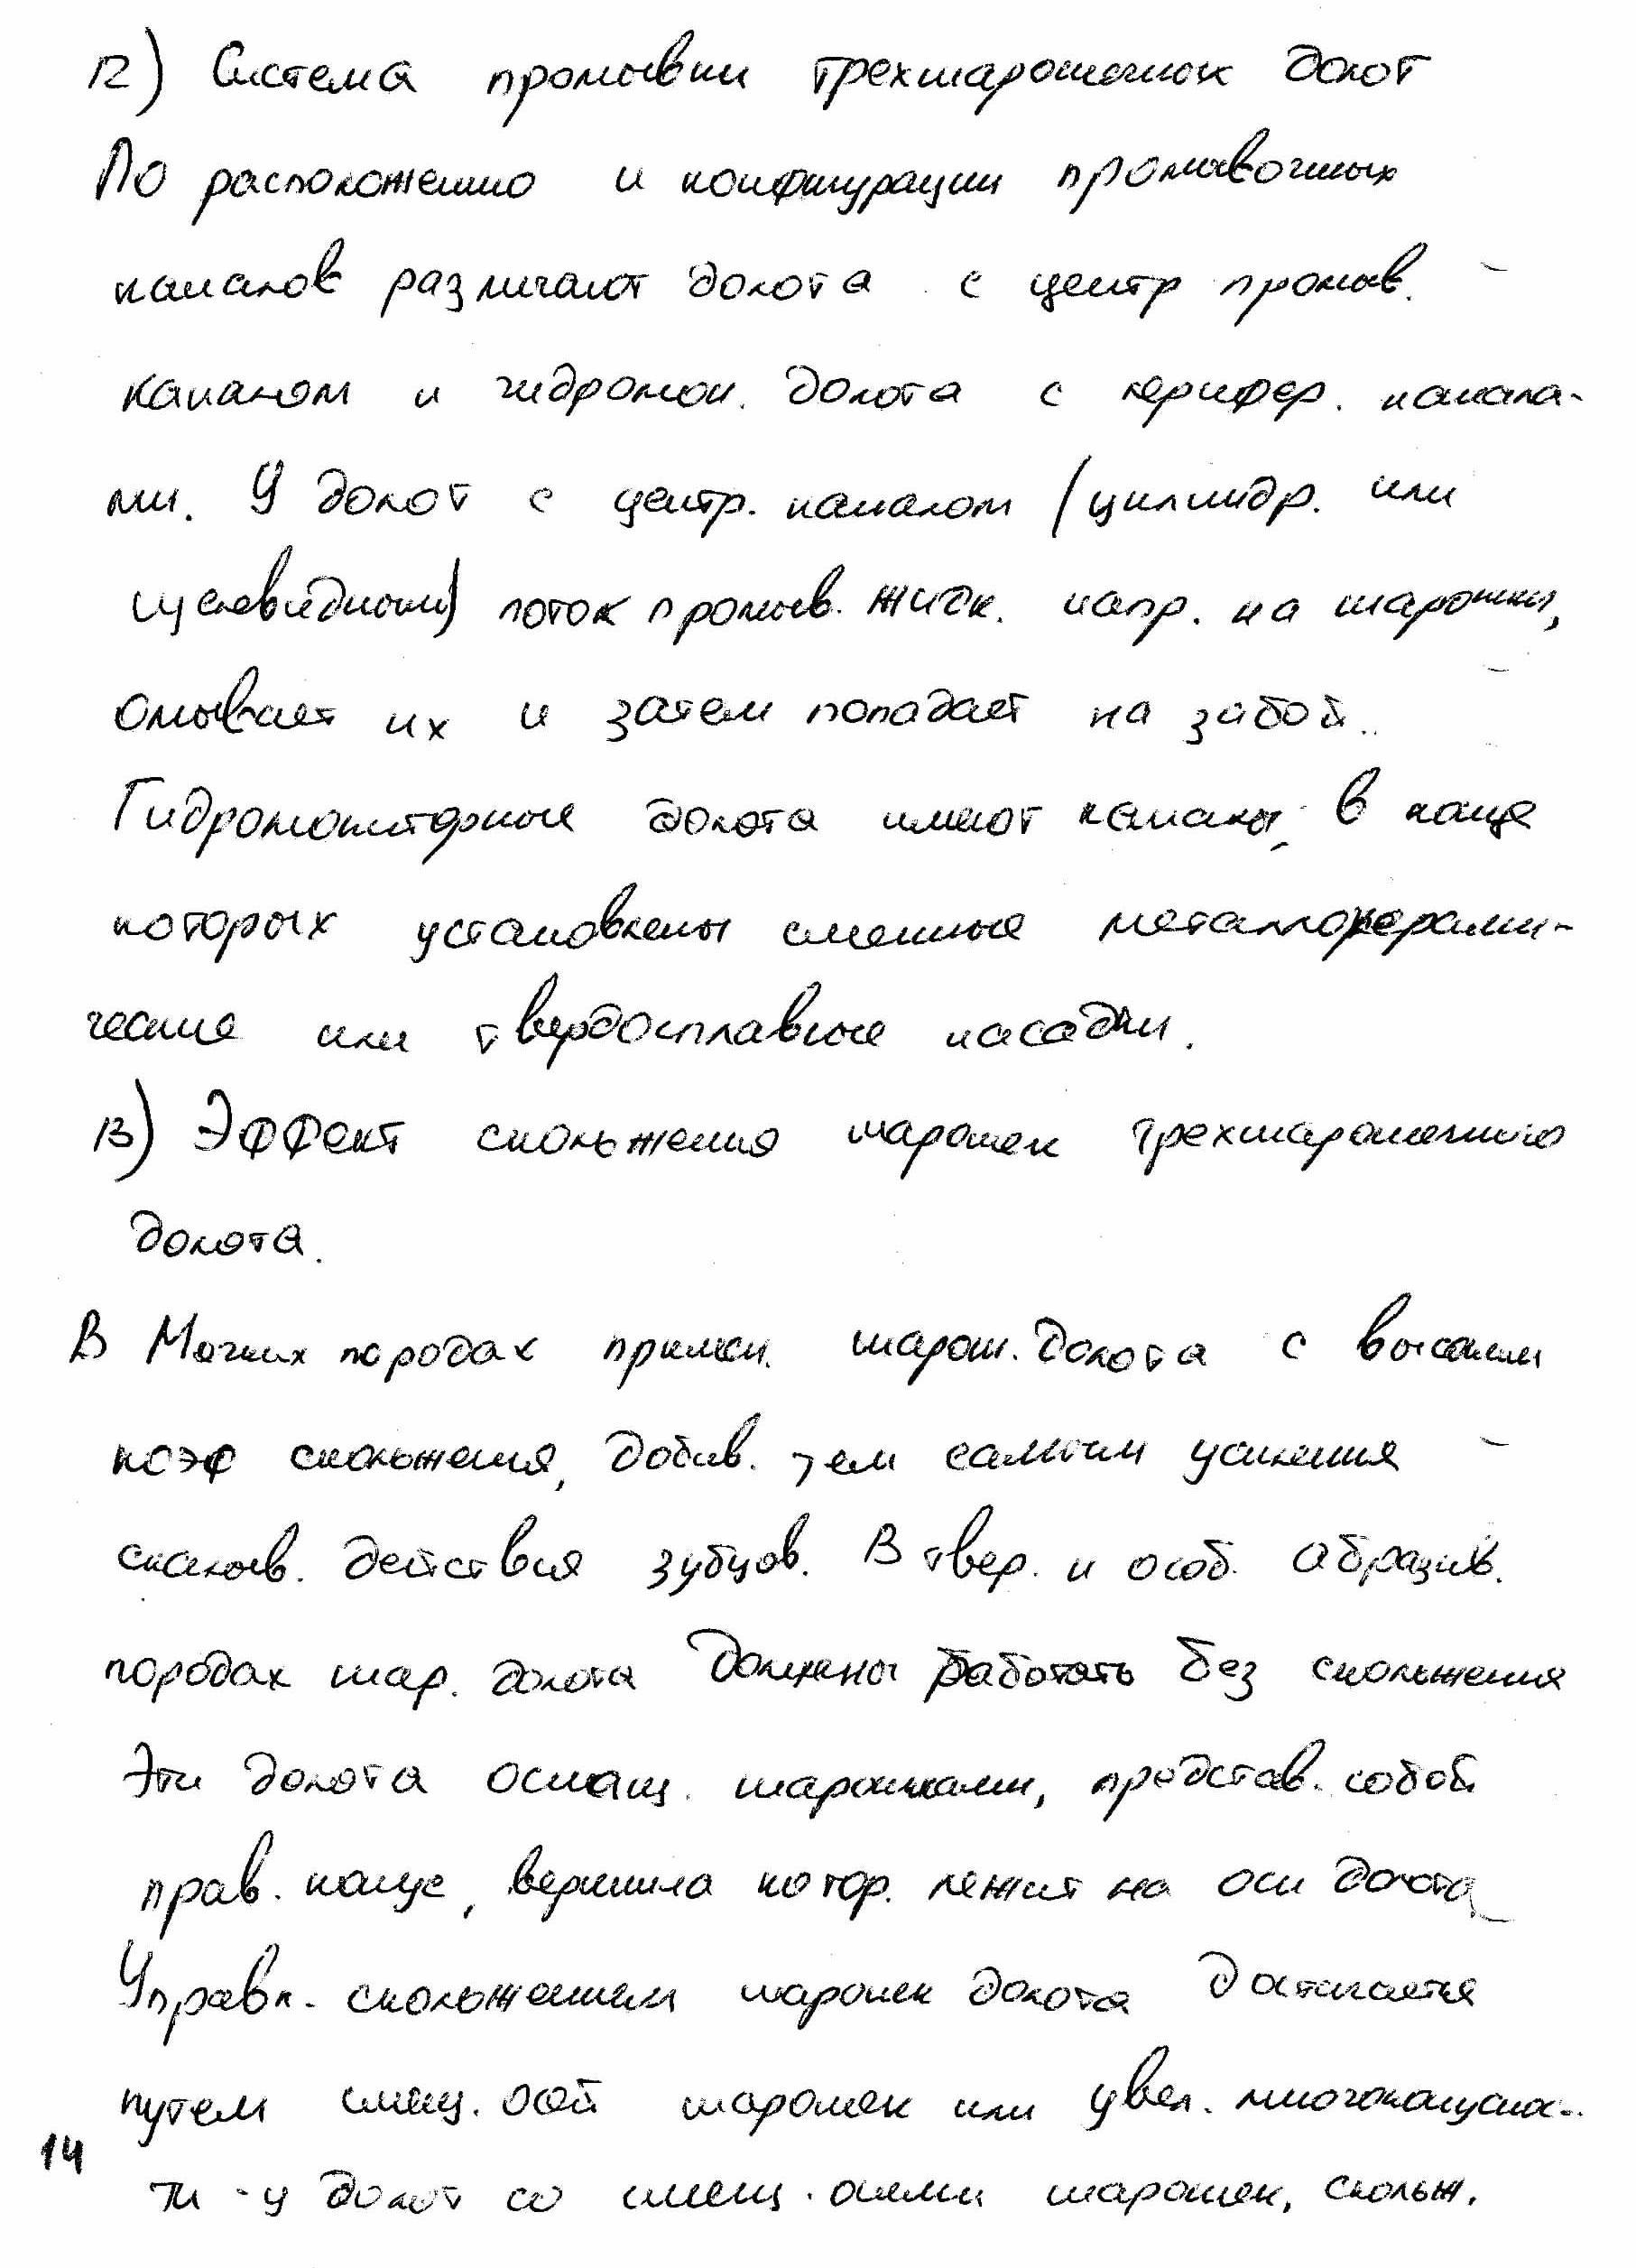 12) Система промывки трехшарошечных долот
По расположению и конфигурации промывочных
каналов различают долота с центр промыв.
каналом и гидромон. долота с перифер. канала-
ми. У долот с центр. каналом (цилиндр. или
щелевидным) поток промыв. жидк. напр. на шарошки,
омывает их и затем попадает на забой.
Гидромониторные долота имеют каналы, в конце
которых установлены сменные металлокерами-
ческие или твердосплавные насадки.
13) Эффект скольжения шарошек трехшарошечного
долота.
В Мягких породах примен. шарош. долота с высоким
коэф скольжения, добив. тем самым усиления
скалыв. действия зубцов. В твер. и особ. абразив.
породах шар. долота должны работать без скольжения
Эти долота оснащ. шарошками, представ. собой
прав. конус, вершина котор. лежит на оси долота
Управл. скольжением шарошек долота достигается
путем смещ. осей шарошек или увел. многоконуснос-
ти - у долот со смещ. осями шарошек, скольж.
14